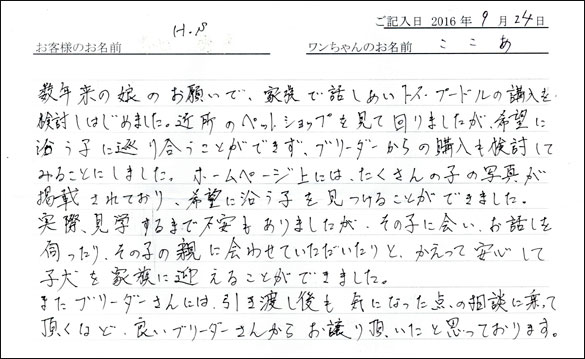 ご記入日 2016 年 9 月 24 日
お客様のお名前 H.S ワンちゃんのお名前 ここあ
数年来の娘のお願いで、家族で話しあいトイ・プードルの購入を
検討しはじめました。近所のペットショップを見て回りましたが、希望に
沿う子に巡り合うことができず、ブリーダーからの購入も検討して
みることにしました。ホームページ上には、たくさんの子の写真が
掲載されており、希望に沿う子を見つけることができました。
実際、見学するまで不安もありましたが、その子に会い、お話しを
伺ったり、その子の親に会わせていただいたりと、かえって安心して
子犬を家族に迎えることができました。
またブリーダーさんには、引き渡し後も気になった点の相談に乗って
頂くなど、良いブリーダーさんからお譲り頂いたと思っております。